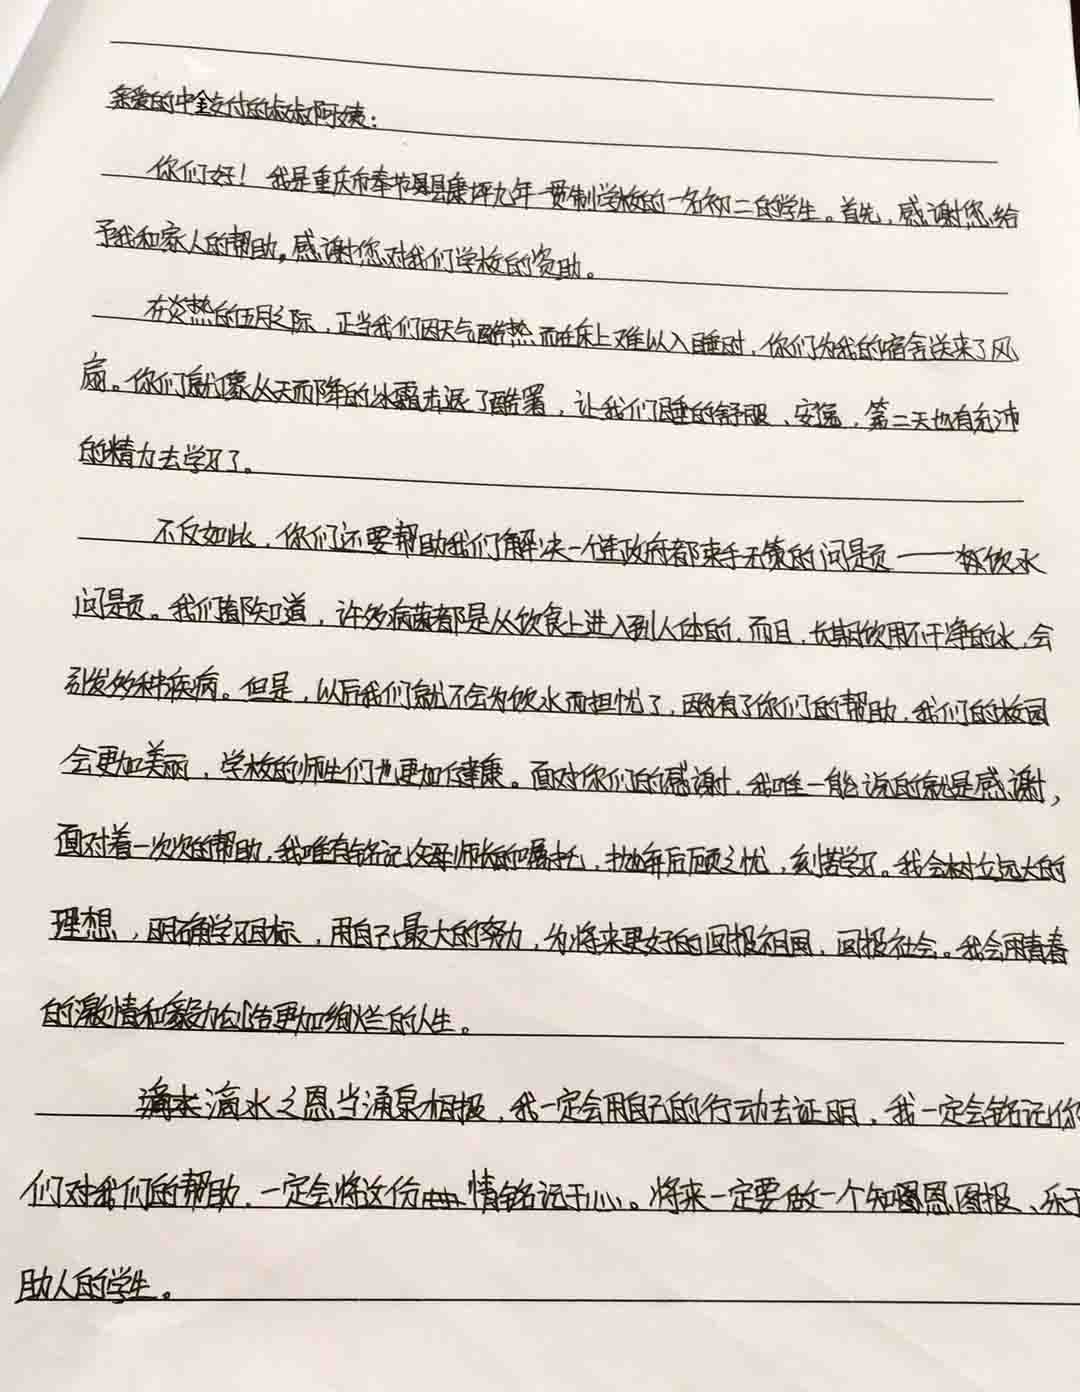 亲爱的中金支付的叔叔阿姨：
你们好！我是重庆市奉节县康坪九年一贯制学校的一名初二的学生。首先，感谢您给
予我和家人的帮助。感谢您对我们学校的资助。
在炎热的五月之际，正当我们因天气酷热而在床上难以入睡时，你们为我的宿舍送来了风
扇。你们就像从天而降的冰霜击退了酷署，让我们睡的舒服、安逸，第二天也有充沛
的精力去学习了。
不仅如此，你们还要帮助我们解决一个连政府都束手无策的问题——饮水
问题。我们都知道，许多病菌都是从饮食上进入到人体的，而且，长期饮用不干净的水，会
引发多种疾病。但是，以后我们就不会为饮水而担忧了，因为有了你们的帮助，我们的校园
会更加美丽，学校的师生们也更加健康。面对你们的感谢，我唯一能说的就是感谢，
面对着一次次的帮助，我唯有铭记父母师长的嘱托，抛弃后顾之忧，刻苦学习。我会树立远大的
理想，明确学习目标，用自己最大的努力，为将来更好的回报祖国，回报社会。我会用青春
的激情和毅力创造更加绚烂的人生。
滴水之恩当涌泉相报，我一定会用自己的行动去证明，我一定会铭记你
们对我们的帮助，一定会将这份情铭记于心。将来一定要做一个知恩图报、乐于
助人的学生。